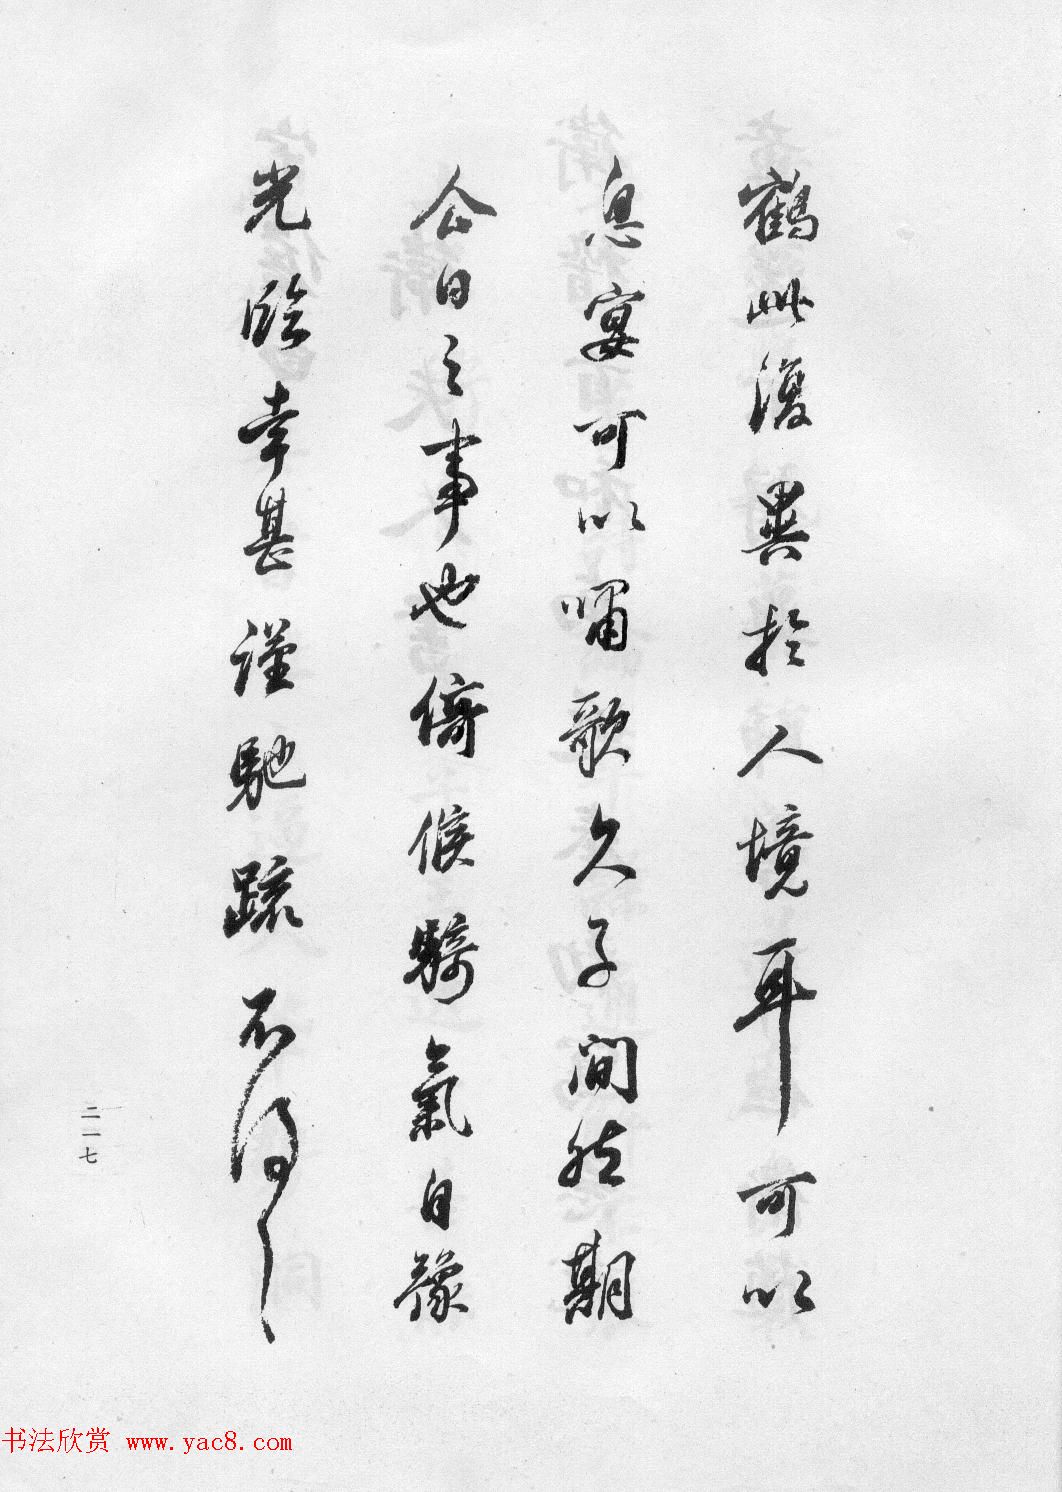 鶴此復異於人境耳可以
息宴可以嘯歌久子閒然期
公日之事也倚候騎氣自豫
光臨幸甚謹馳疏不
二一七
书法欣赏 www.yac8.com